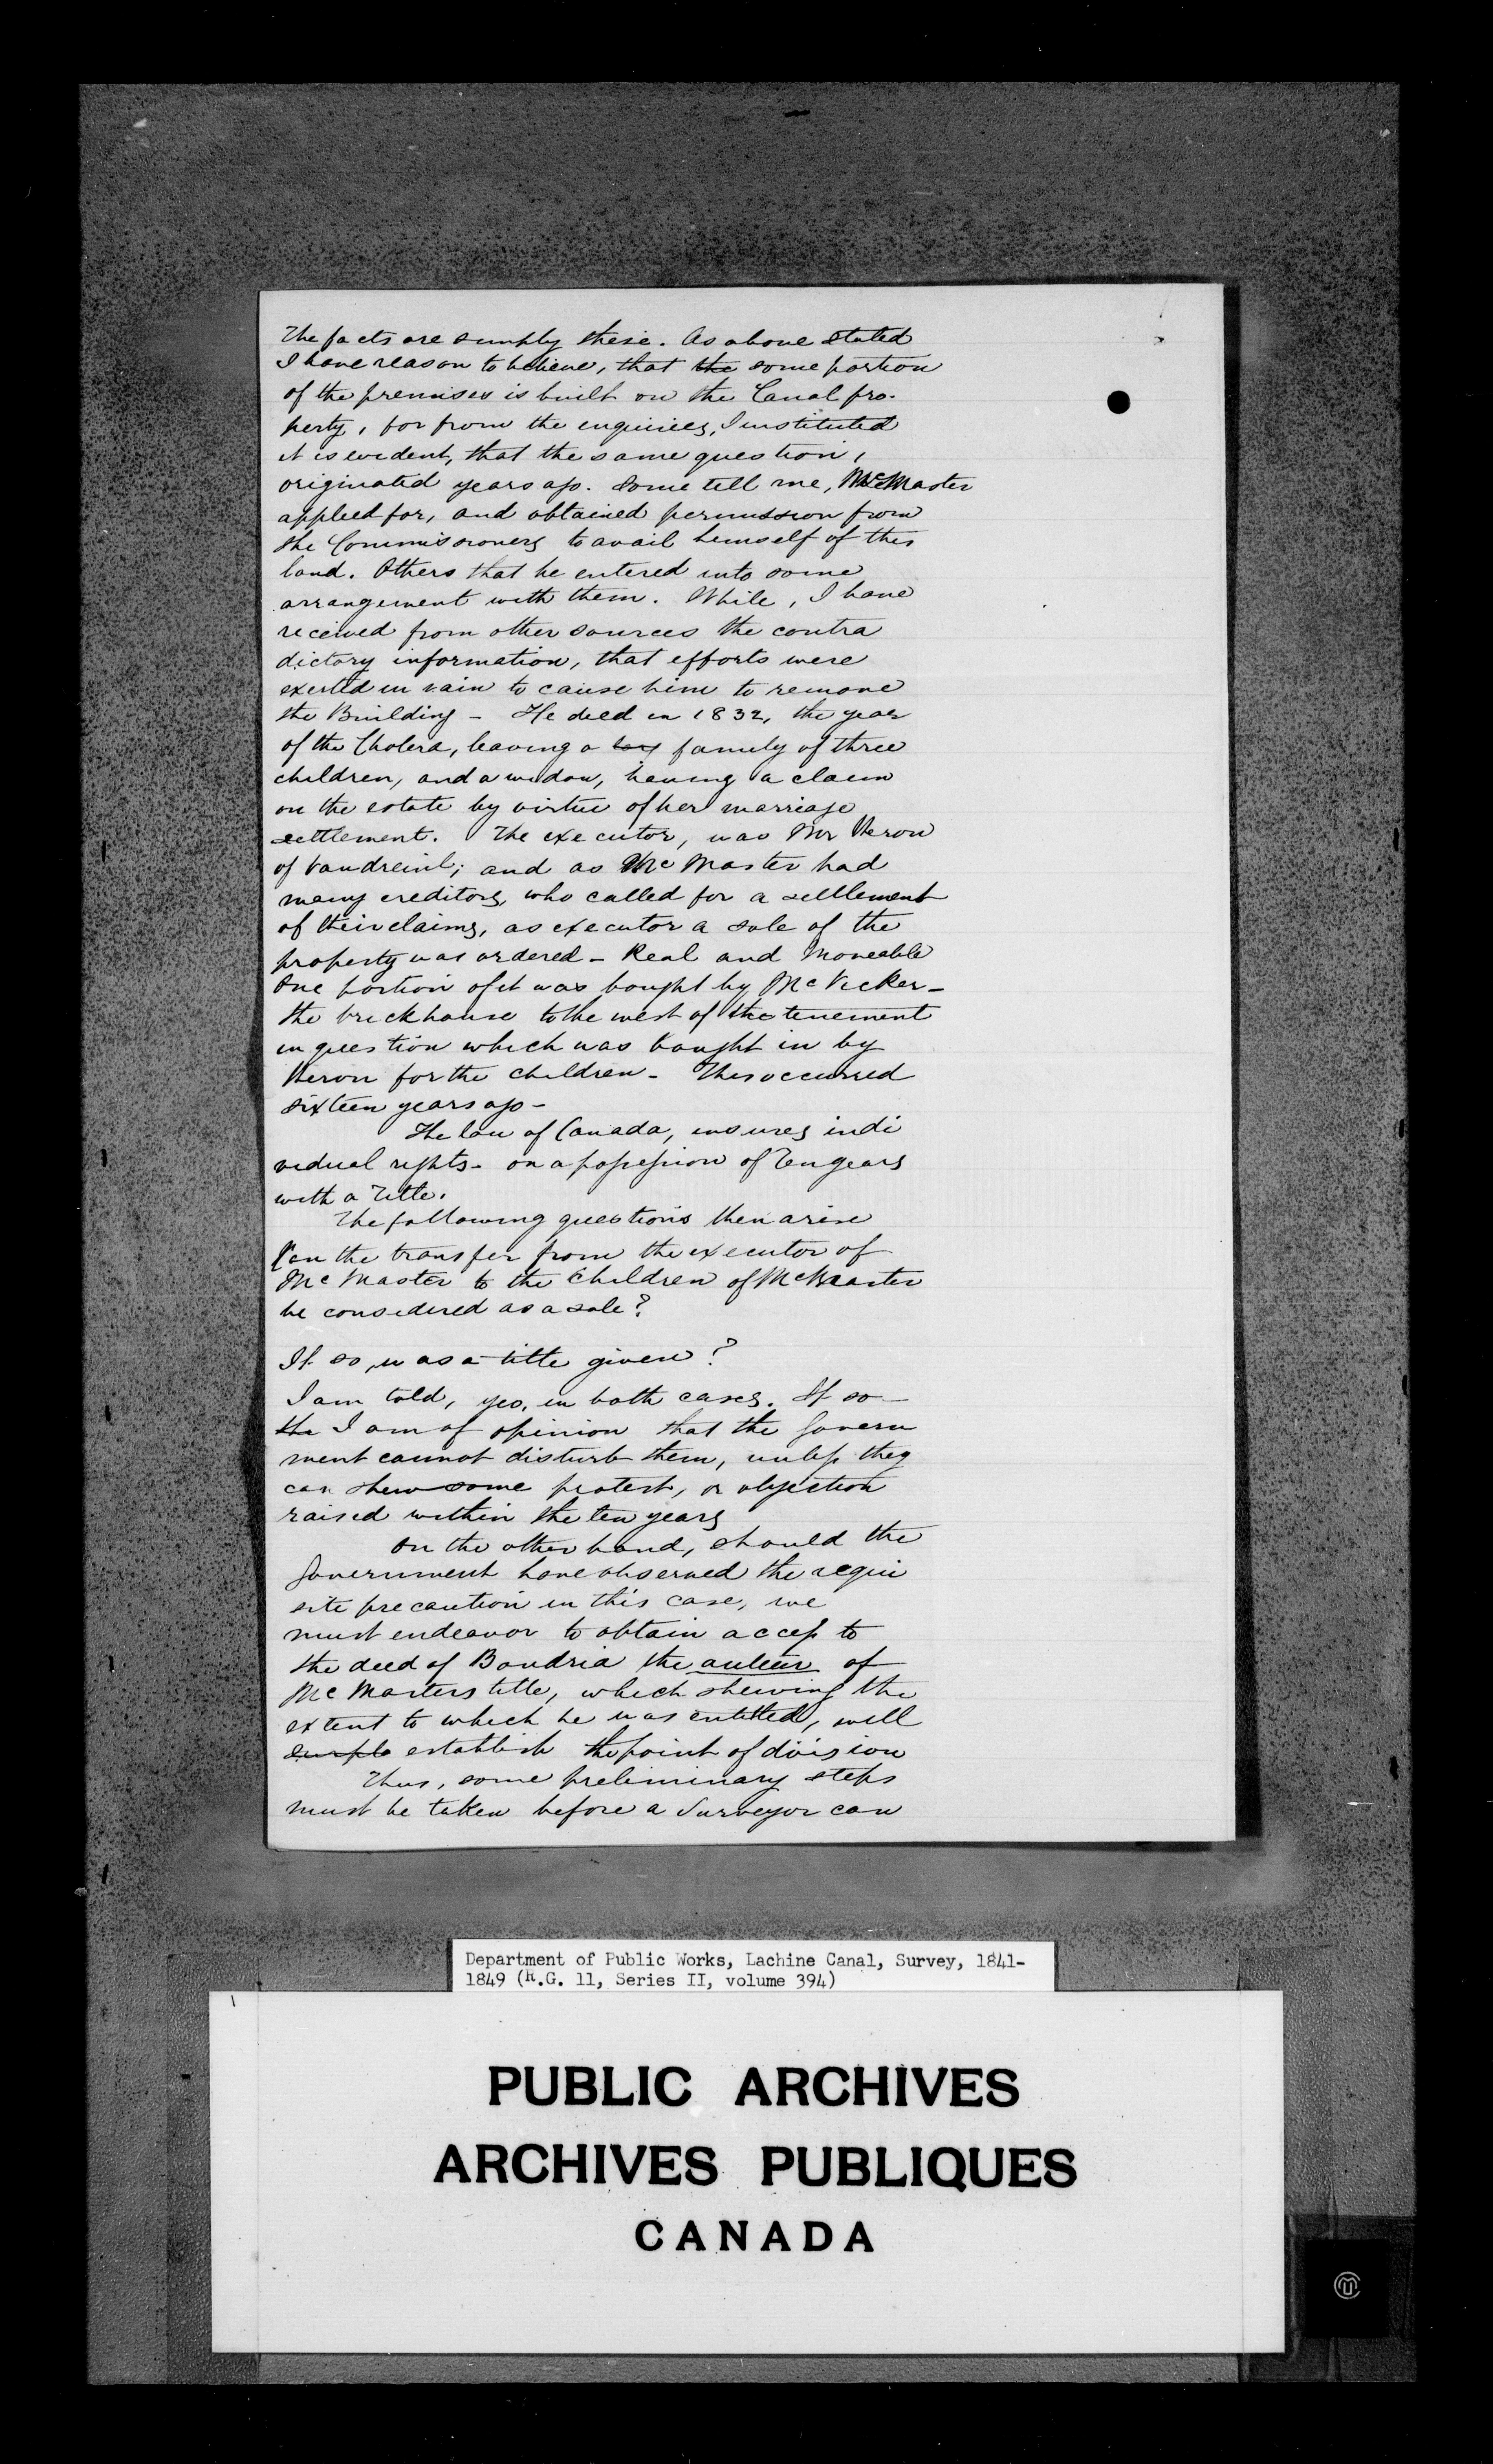 The facts are simply these. As above stated
I have reason to believe, that the some portion
of the premises is built on the Canal pro-
perty, for from the enquiries, I instituted
it is evident, that the same question,
originated years ago. Some tell me, McMaster
applied for, and obtained permission from
the Commissioners to avail himself of this
land. Others that he entered into some
arrangement with them. While, I have
received from other sources the contra
dictory information, that efforts were
exerted in vain to cause him to remove
the Building - He died in 1832, the year
of the Cholera, leaving a family of three
children, and a widow, having a claim
on the estate by virtue of her marriage
settlement. The executor, was Mr Heron
of Vaudreuil; and as McMaster had
many creditors, who called for a settlement
of their claims, as executor a sale of the
property was ordered - Real and Moveable
One portion of it was bought by McVicker -
the brick house to the west of the tenement
in question which was bought in by
Heron for the children - This occurred
sixteen years ago -
The law of Canada, insures indi
vidual rights - on a possession of Ten years
with a Title.
The following questions then arise
Can the transfer from the executor of
McMaster to the children of McMaster
be considered as a sale?
If so, was a title given?
I am told, yes, in both cases. If so -
the I am of opinion that the Govern
ment cannot disturb them, unless they
can shew some protest, or objection
raised within the ten years
On the other hand, should the
Government have observed the requi
site precaution in this case, we
must endeavor to obtain access to
the deed of Boudria the auteur of
McMasters title, which shewing the
extent to which he was entitled, will
establish the point of division
Thus, some preliminary steps
must be taken before a Surveyor can
Department of Public Works, Lachine Canal, Survey, 1841-
1849 (R.G. 11, Series II, volume 394)
PUBLIC ARCHIVES
ARCHIVES PUBLIQUES
CANADA